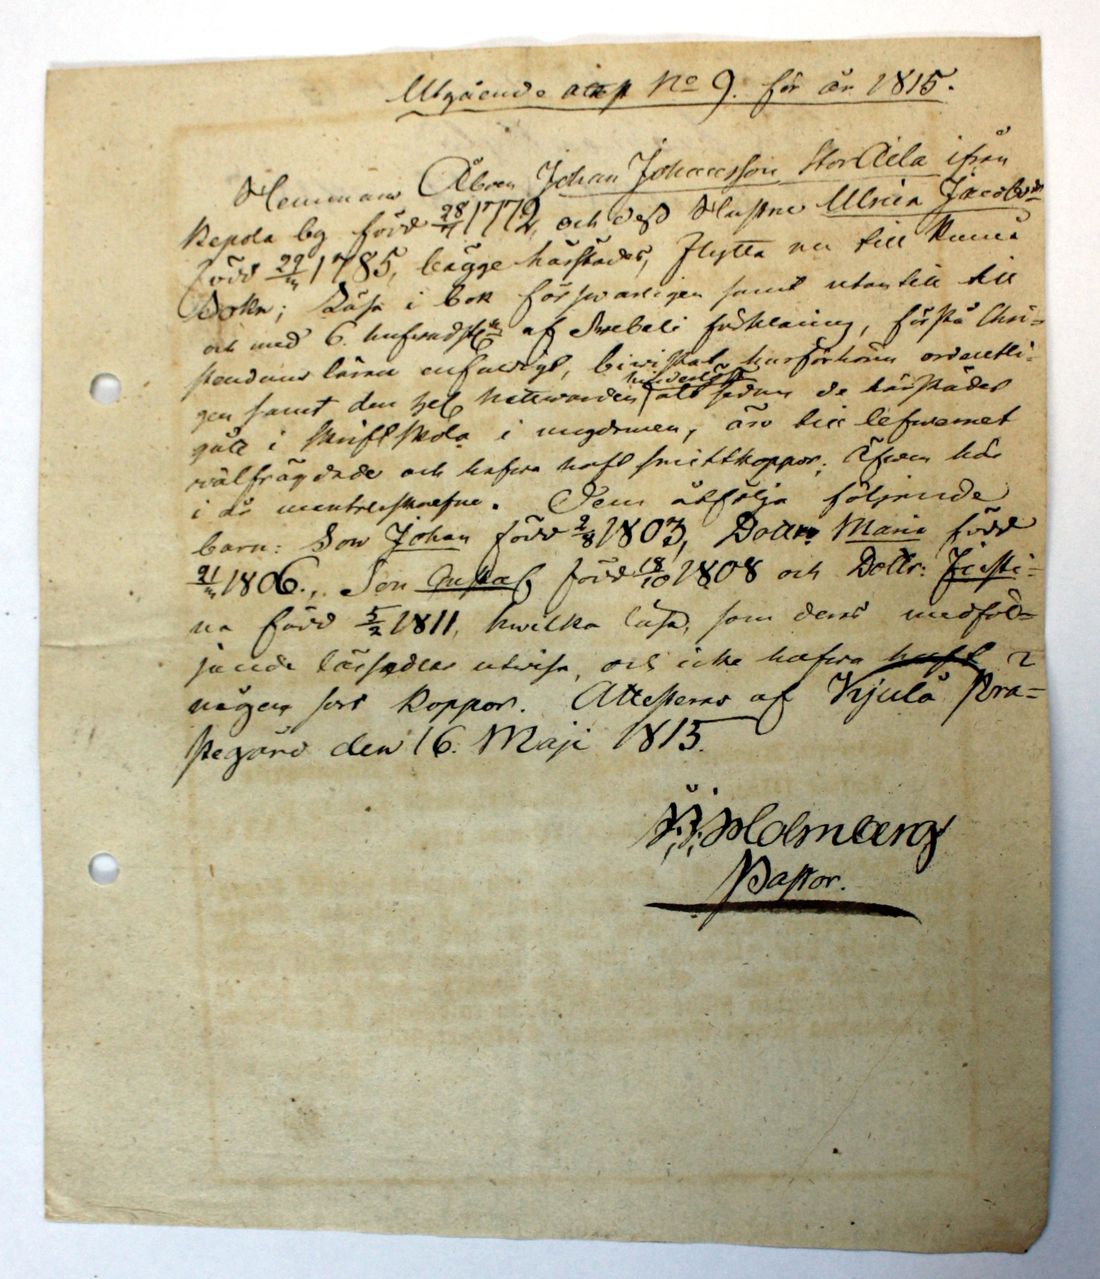 Utgående attest No 9. för år 1815.
Hemmans Åboen Johan Johansson StorAila ifrån
Kepola by född 28/11 1772, och dess Hustru Ulrica Jacobsdr
född 29/m 1785, bägge härstädes, flytta nu till Kumå
Sokn; Läsa i bok försvarligen samt utantill till
och med 6. hufvudst: af Svebeli förklaring, förstå Chri-
stendoms läran enfaldigt, bivistat husförhören ordentli-
gen samt den Hel. Nattvarden hinderlöst alt sedan de härstädes
gått i Skriftskola i ungdomen, äro till lefvernet
välfrägdade och hafva haft smittkoppor; Äfven här
i år mantalskrefne. Dem åtfölja följande
barn: Son Johan född 2/8 1803, Dottr: Maria född
21/m 1806., Son Gustaf född 18/10 1808 och Dottr: Justi-
na född 5/2 1811, hvilka läsa, som deras medföl-
jande läsesedlar utvisa, och icke hafva haft
någon sort koppor. Attesteras af Kjulo Pra-
stegård den 16. Maji 1815.
Holmberg
Pastor.